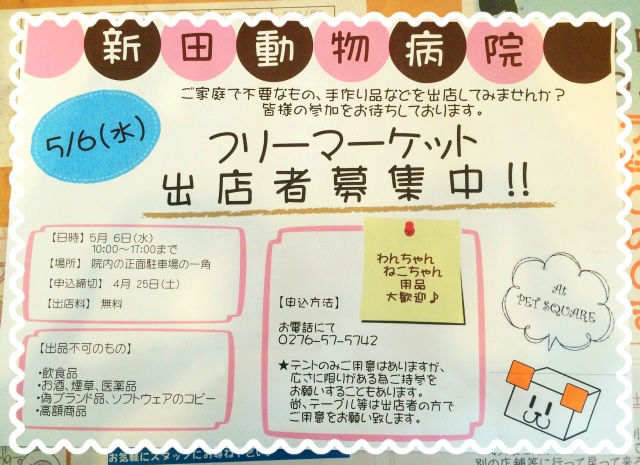 新田動物病院
ご家庭で不要なもの、手作り品などを出店してみませんか？
皆様の参加をお待ちしております。
5/6(水)
フリーマーケット
出店者募集中!!
【日時】5月 6日(水)
10:00～17:00まで
【場所】 院内の正面駐車場の一角
【申込締切】 4月 25日(土)
【出店料】 無料
【出品不可のもの】
・飲食品
・お酒、煙草、医薬品
・偽ブランド品、ソフトウェアのコピー
・高額商品
わんちゃん
ねこちゃん
用品
大歓迎♪
【申込方法】
お電話にて
0276-57-5742
★テントのみご用意はありますが、
広さに限りがある為ご持参を
お願いすることもあります。
尚、テーブル等は出店者の方で
ご用意をお願い致します。
At
PET SQUARE